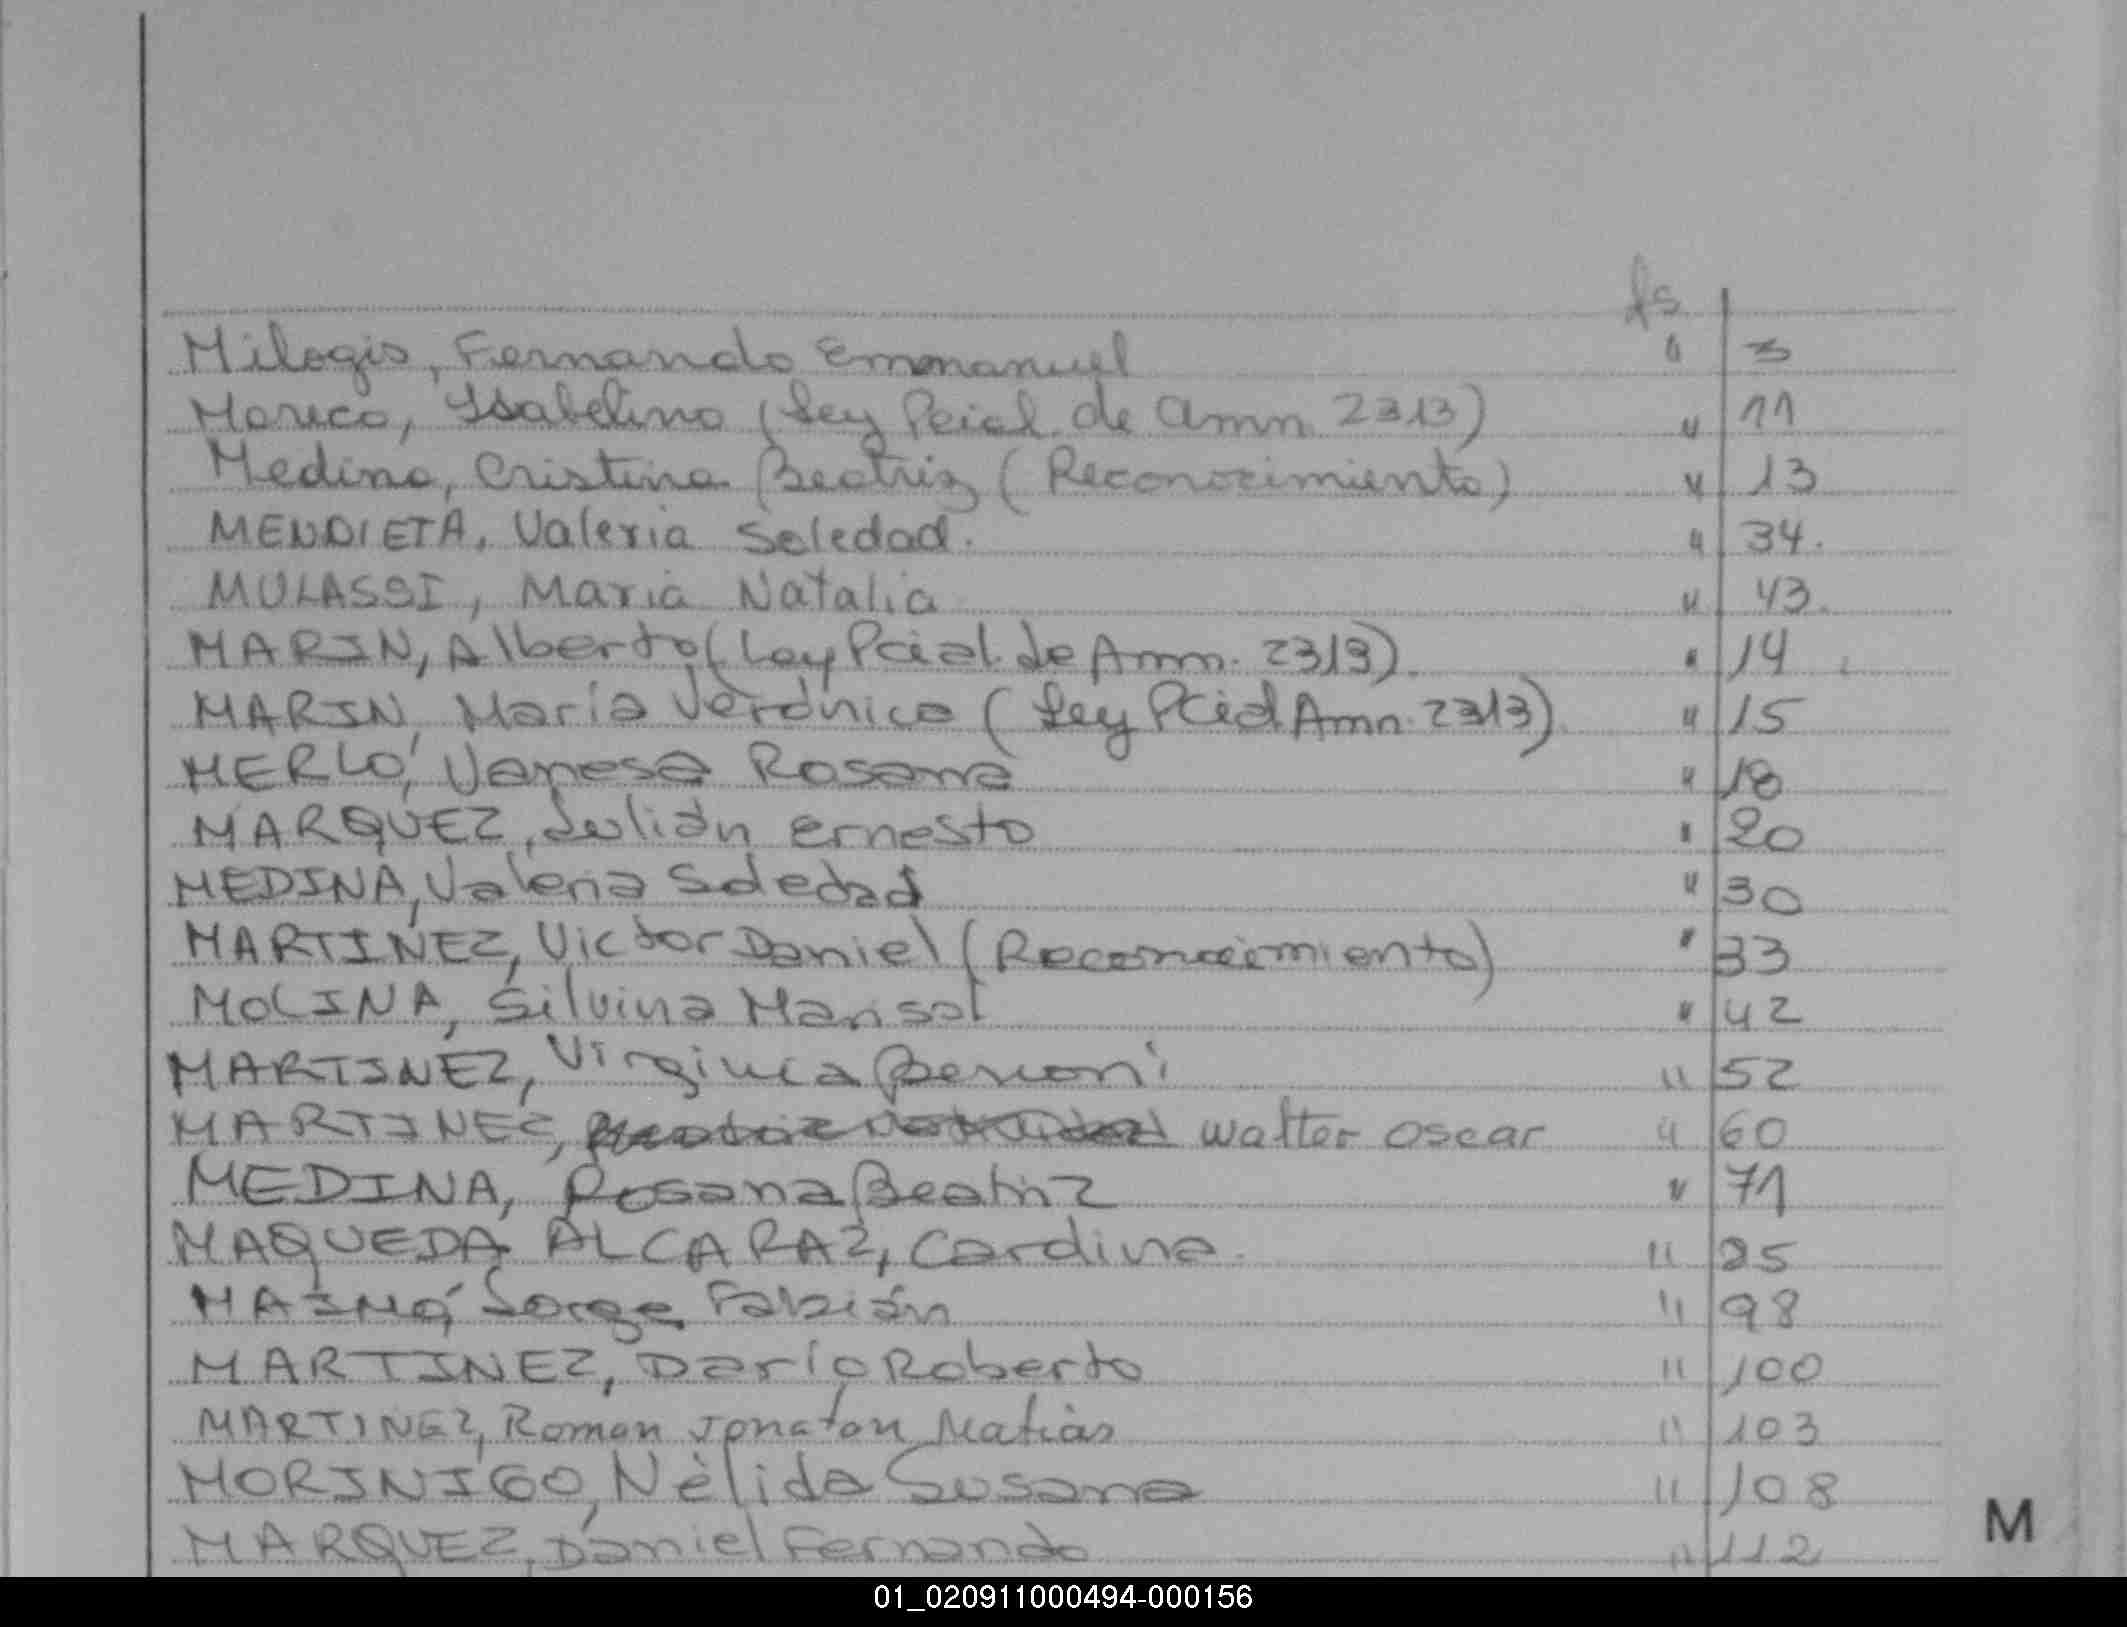 fs
Milogis, Fernando Emmanuel " 3
Moruco, Ysabelino (Ley Pcial. de Amn. 2313) " 11
Medina, Cristina Beatriz (Reconocimiento) " 13
MENDIETA, Valeria Soledad. " 34.
MULASSI, Maria Natalia " 43.
MARIN, Alberto (Ley Pcial. de Amn. 2313). " 14
MARIN, María Verónica (Ley Pcial Amn. 2313). " 15
MERLO, Vanesa Rosana " 18
MARQUEZ, Julián Ernesto " 20
MEDINA, Valeria Soledad " 30
MARTINEZ, Victor Daniel (Reconocimiento) " 33
MOLINA, Silvina Marisol " 42
MARTINEZ, Virginia " 52
MARTINEZ, Walter Oscar " 60
MEDINA, Rosana Beatriz " 71
MAQUEDA ALCARAZ, Carolina. "
Jorge Fabián " 98
MARTINEZ, Darío Roberto " 100
MARTINEZ, Roman Jonatan Matias " 103
MORINIGO, Nélida Susana " 108
MARQUEZ, Daniel Fernando " 112
M
01_020911000494-000156